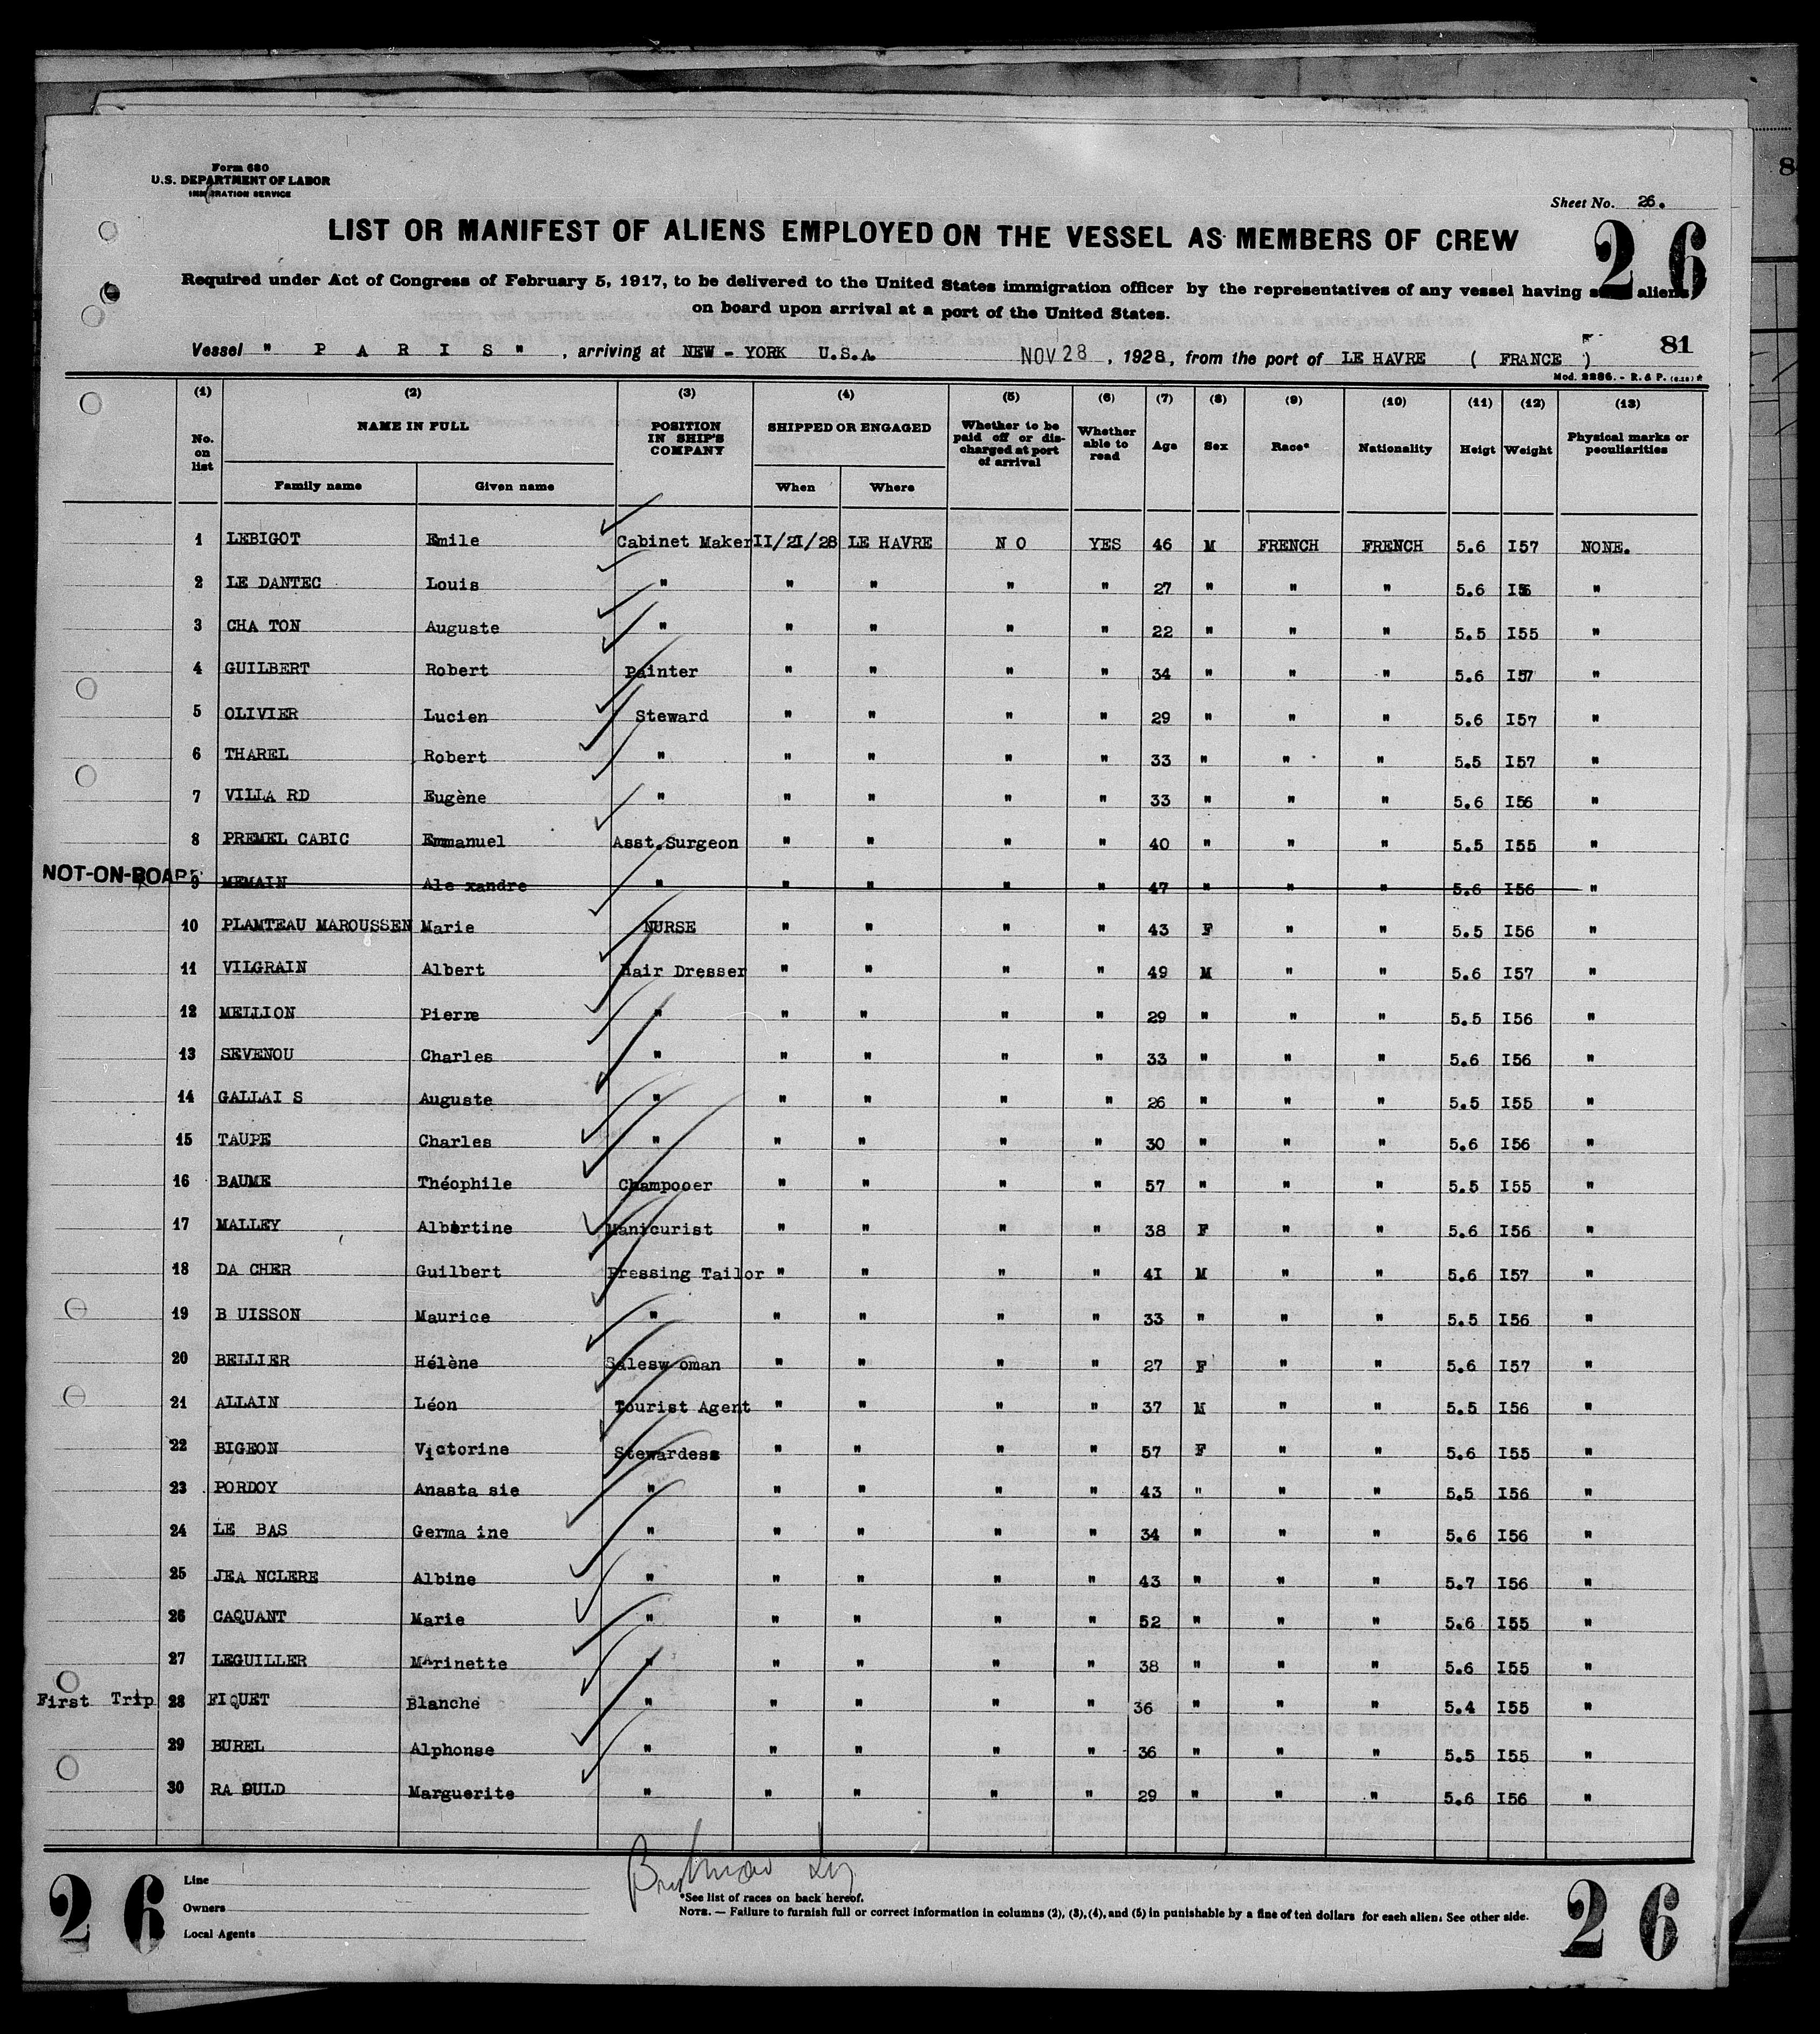 Form 680
U.S. DEPARTMENT OF LABOR
IMMIGRATION SERVICE
Sheet No. 26.
26
LIST OR MANIFEST OF ALIENS EMPLOYED ON THE VESSEL AS MEMBERS OF CREW
Required under Act of Congress of February 5, 1917, to be delivered to the United States immigration officer by the representatives of any vessel having such aliens
on board upon arrival at a port of the United States.
81
Vessel " P A R I S " , arriving at NEW - YORK U.S.A. NOV 28 , 1928, from the port of LE HAVRE ( FRANCE )
Mod. 2286. - R. & P.
(1) (2) (3) (4) (5) (6) (7) (8) (9) (10) (11) (12) (13)
No. on list NAME IN FULL POSITION IN SHIP'S COMPANY SHIPPED OR ENGAGED Whether to be paid off or discharged at port of arrival Whether able to read Age Sex Race* Nationality Heigt Weight Physical marks or peculiarities
Family name Given name When Where
1 LEBIGOT Emile Cabinet Maker II/2I/28 LE HAVRE N O YES 46 M FRENCH FRENCH 5.6 I57 NONE.
2 LE DANTEC Louis " " " " " 27 " " " 5.6 "
3 CHA TON Auguste " " " " " 22 " " " 5.5 I55 "
4 GUILBERT Robert Painter " " " " 34 " " " 5.6 I57 "
5 OLIVIER Lucien Steward " " " " 29 " " " 5.6 I57 "
6 THAREL Robert " " " " " 33 " " " 5.5 I57 "
7 VILLA RD Eugène " " " " " 33 " " " 5.6 I56 "
8 PREMEL CABIC Emmanuel Asst.Surgeon " " " " 40 " " " 5.5 I55 "
NOT-ON-BOARD 9 MEMAIN Ale xandre " " " " " 47 " " " 5.6 I56 "
10 PLAMTEAU MAROUSSEN Marie NURSE " " " " 43 F " " 5.5 I56 "
11 VILGRAIN Albert Hair Dresser " " " " 49 M " " 5.6 I57 "
12 MELLION Pierre " " " " " 29 " " " 5.5 I56 "
13 SEVENOU Charles " " " " " 33 " " " 5.6 I56 "
14 GALLAI S Auguste " " " " " 26 " " " 5.5 I55 "
15 TAUPE Charles " " " " " 30 " " " 5.6 I56 "
16 BAUME Théophile Champooer " " " " 57 " " " 5.5 I55 "
17 MALLEY Albertine Manicurist " " " " 38 F " " 5.6 I56 "
18 DA CHER Guilbert Pressing Tailor " " " " 4I M " " 5.6 I57 "
19 B UISSON Maurice " " " " " 33 " " " 5.5 I56 "
20 BELLIER Hélène Salesw oman " " " " 27 F " " 5.6 I57 "
21 ALLAIN Léon Tourist Agent " " " " 37 M " " 5.5 I56 "
22 BIGEON Victorine Stewardess " " " " 57 F " " 5.6 I55 "
23 PORDOY Anasta sie " " " " " 43 " " " 5.5 I56 "
24 LE BAS Germa ine " " " " " 34 " " " 5.6 I56 "
25 JEA NCLERE Albine " " " " " 43 " " " 5.7 I56 "
26 CAQUANT Marie " " " " " 52 " " " 5.6 I55 "
27 LEGUILLER Marinette " " " " " 38 " " " 5.6 I55 "
First Trip 28 FIQUET Blanche " " " " " 36 " " " 5.4 I55 "
29 BUREL Alphonse " " " " " 36 " " " 5.5 I55 "
30 RA OULD Marguerite " " " " " 29 " " " 5.6 I56 "
26
Line
Owners
Local Agents
*See list of races on back hereof.
NOTE. — Failure to furnish full or correct information in columns (2), (3), (4), and (5) in punishable by a fine of ten dollars for each alien. See other side.
26